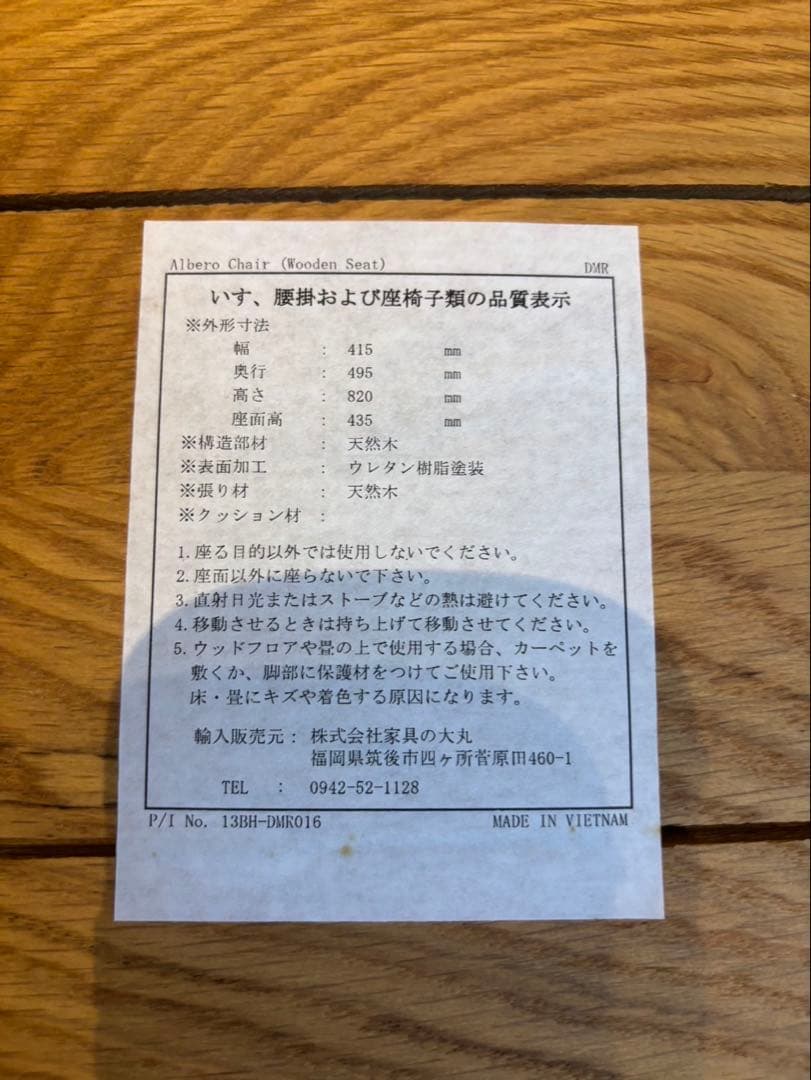 Albero Chair (Wooden Seat) DMR
いす、腰掛および座椅子類の品質表示
※外形寸法
幅 : 415 mm
奥行 : 495 mm
高さ : 820 mm
座面高 : 435 mm
※構造部材 : 天然木
※表面加工 : ウレタン樹脂塗装
※張り材 : 天然木
※クッション材 :
1. 座る目的以外では使用しないでください。
2. 座面以外に座らないで下さい。
3. 直射日光またはストーブなどの熱は避けてください。
4. 移動させるときは持ち上げて移動させてください。
5. ウッドフロアや畳の上で使用する場合、カーペットを
敷くか、脚部に保護材をつけてご使用下さい。
床・畳にキズや着色する原因になります。
輸入販売元 : 株式会社家具の大丸
福岡県筑後市四ヶ所菅原田460-1
TEL : 0942-52-1128
P/I No. 13BH-DMR016 MADE IN VIETNAM